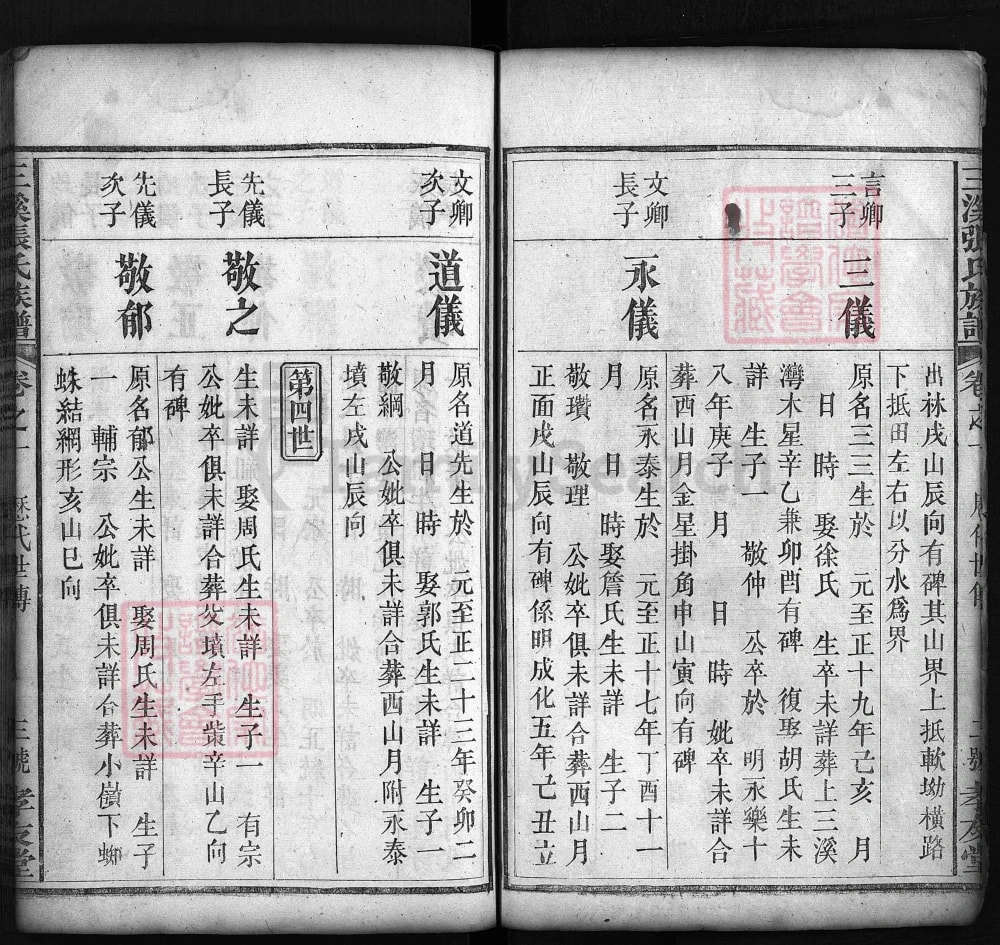 三溪張氏族譜 卷之一 歷代世傳 二號 孝友堂
出秝戌山辰向有碑其山界上抵軟坳橫路
下抵田左右以分水爲界
言卿三子
三儀
原名三三生於 元至正十九年己亥 月
日 時 娶徐氏 生卒未詳葬上三溪
灣木星辛乙兼卯酉有碑 復娶胡氏生未
詳 生子一 敬仲 公卒於 明永樂十
八年庚子 月 日 時 妣卒未詳合
葬西山月金星掛角申山寅向有碑
文卿長子
永儀
原名永泰生於 元至正十七年丁酉十一
月 日 時娶詹氏生未詳 生子二
敬瓚 敬理 公妣卒俱未詳合葬西山月
正面戌山辰向有碑係明成化五年己丑立
文卿次子
道儀
原名道先生於 元至正二十三年癸卯二
月 日 時 娶郭氏生未詳 生子一
敬綱 公妣卒俱未詳合葬西山月附永泰
墳左戌山辰向
第四世
先儀長子
敬之
生未詳 娶周氏生未詳 生子一 有宗
公妣卒俱未詳合葬父墳左手塝辛山乙向
有碑
先儀次子
敬郁
原名郁公生未詳 娶周氏生未詳 生子
一 輔宗 公妣卒俱未詳合葬小嶺下蜘
蛛結網形亥山巳向
三溪張氏族譜 卷之一 歷代世傳 三號 孝友堂
FamilySearch